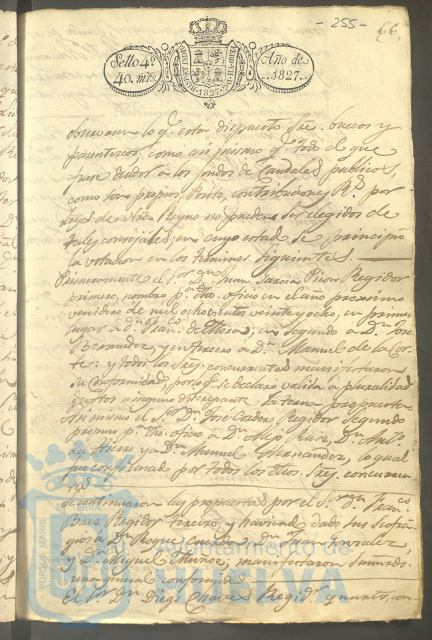 - 255 -
66,
Sello 4º
40. mrs.
Año de
1827.
observar lo q. esta dispuesto sre. huecos y
parentescos, como asi mismo q. todo el que
fuese deudor a los fondos de Caudales publicos,
como son propios, Posito, contribuciones, Rs. por
Leyes de estos Reyno no pueden ser elegidos de
tales concejales: en cuyo estado se principio
la votacion en los terminos siguientes.
Primeramente el Sor. Dn. Juan Garcia Picon Regidor
primero, nombro pa. dho. oficio en el año proximo
venidero de mil ochocientos veinte y ocho, en primer
lugar a Dn. Franco. de Mora, en segundo a Dn. Jose
Bermudez, y en tercero a Dn. Manuel de la Cor-
te: y todos los Sres. concurrentes manifestaron
su conformidad, por lo q. se declaro valida a pluralidad
de votos ninguno discrepante la terna propuesta
Asi mismo el Sor. Dn. José Cordero Regidor Segundo
propuso pa. dho. oficio a Dn. Alejo Ruiz, Dn. Anto.
y Dn. Manuel Hernandez, lo qual
fue confirmado por todos los dhos. Sres. concurren-
tes
Se continuaron las propuestas por el Sor. Dn. Franco.
Baez Regidor tercero, y haviendo dado sus sufra-
gios a Dn. Roque Cuesta, Dn. Juan Gonzalez,
y Dn. Miguel Muñoz, manifestaron
una general conformidad
El Sor. Dn. Diego Chaves Regidr. quarto, con-
Ayuntamiento de
HUELVA